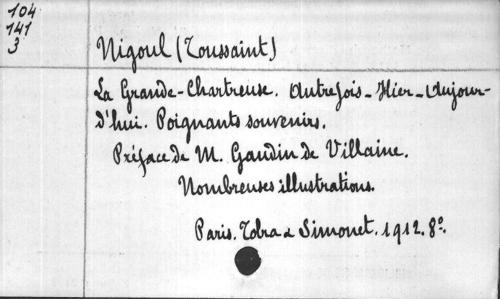 104
141
3
Nigoul (Toussaint)
La Grande-Chartreuse. Autrefois - Hier - Aujour-
d'hui. Poignants souvenirs.
Préface de M. Gaudin de Villaine.
Nombreuses illustrations.
Paris. Tolra & Simonet. 1912. 8º.